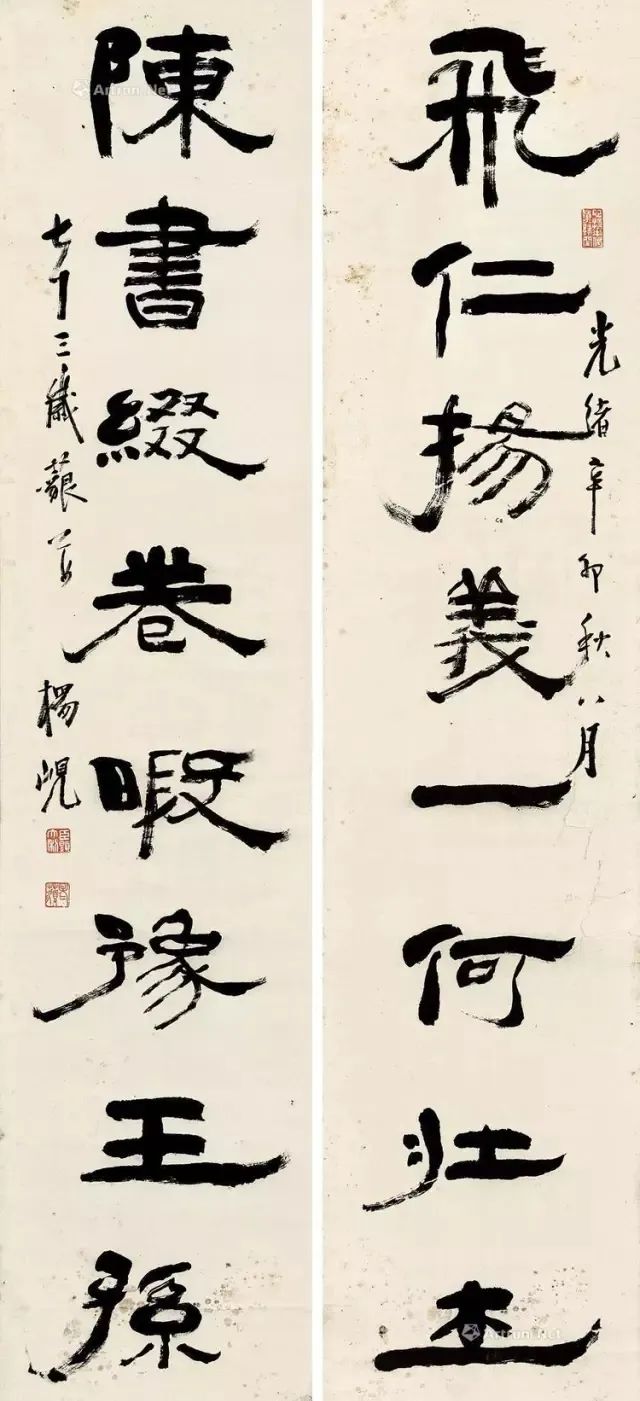 飛仁揚義一何壯
光緒辛卯秋八月
陳書綴卷暇豫王孫
七十三歲藐翁楊峴
Artron.Net
Artron.Net